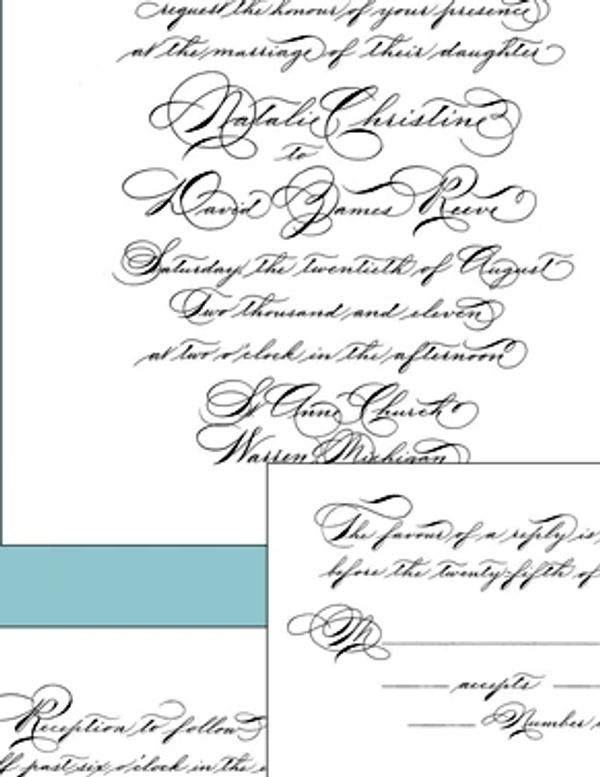 request the honour of your presence
at the marriage of their daughter
Natalie Christine
to
David James Reeve
Saturday, the twentieth of August
Two thousand and eleven
at two o'clock in the afternoon
St Anne Church
Warren Michigan
The favour of a reply is
before the twenty-fifth of
M
accepts
Number
Reception to follow
six o'clock in the